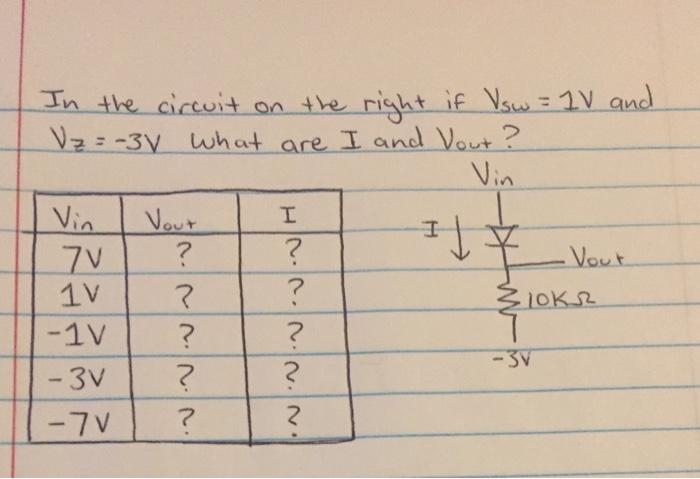 In the circuit on the right if Vsw = 1V and
Vz = -3V what are I and Vout?
Vin
Vin Vout I
7V ? ?
1V ? ?
-1V ? ?
-3V ? ?
-7V ? ?
I
Vout
10KΩ
-3V